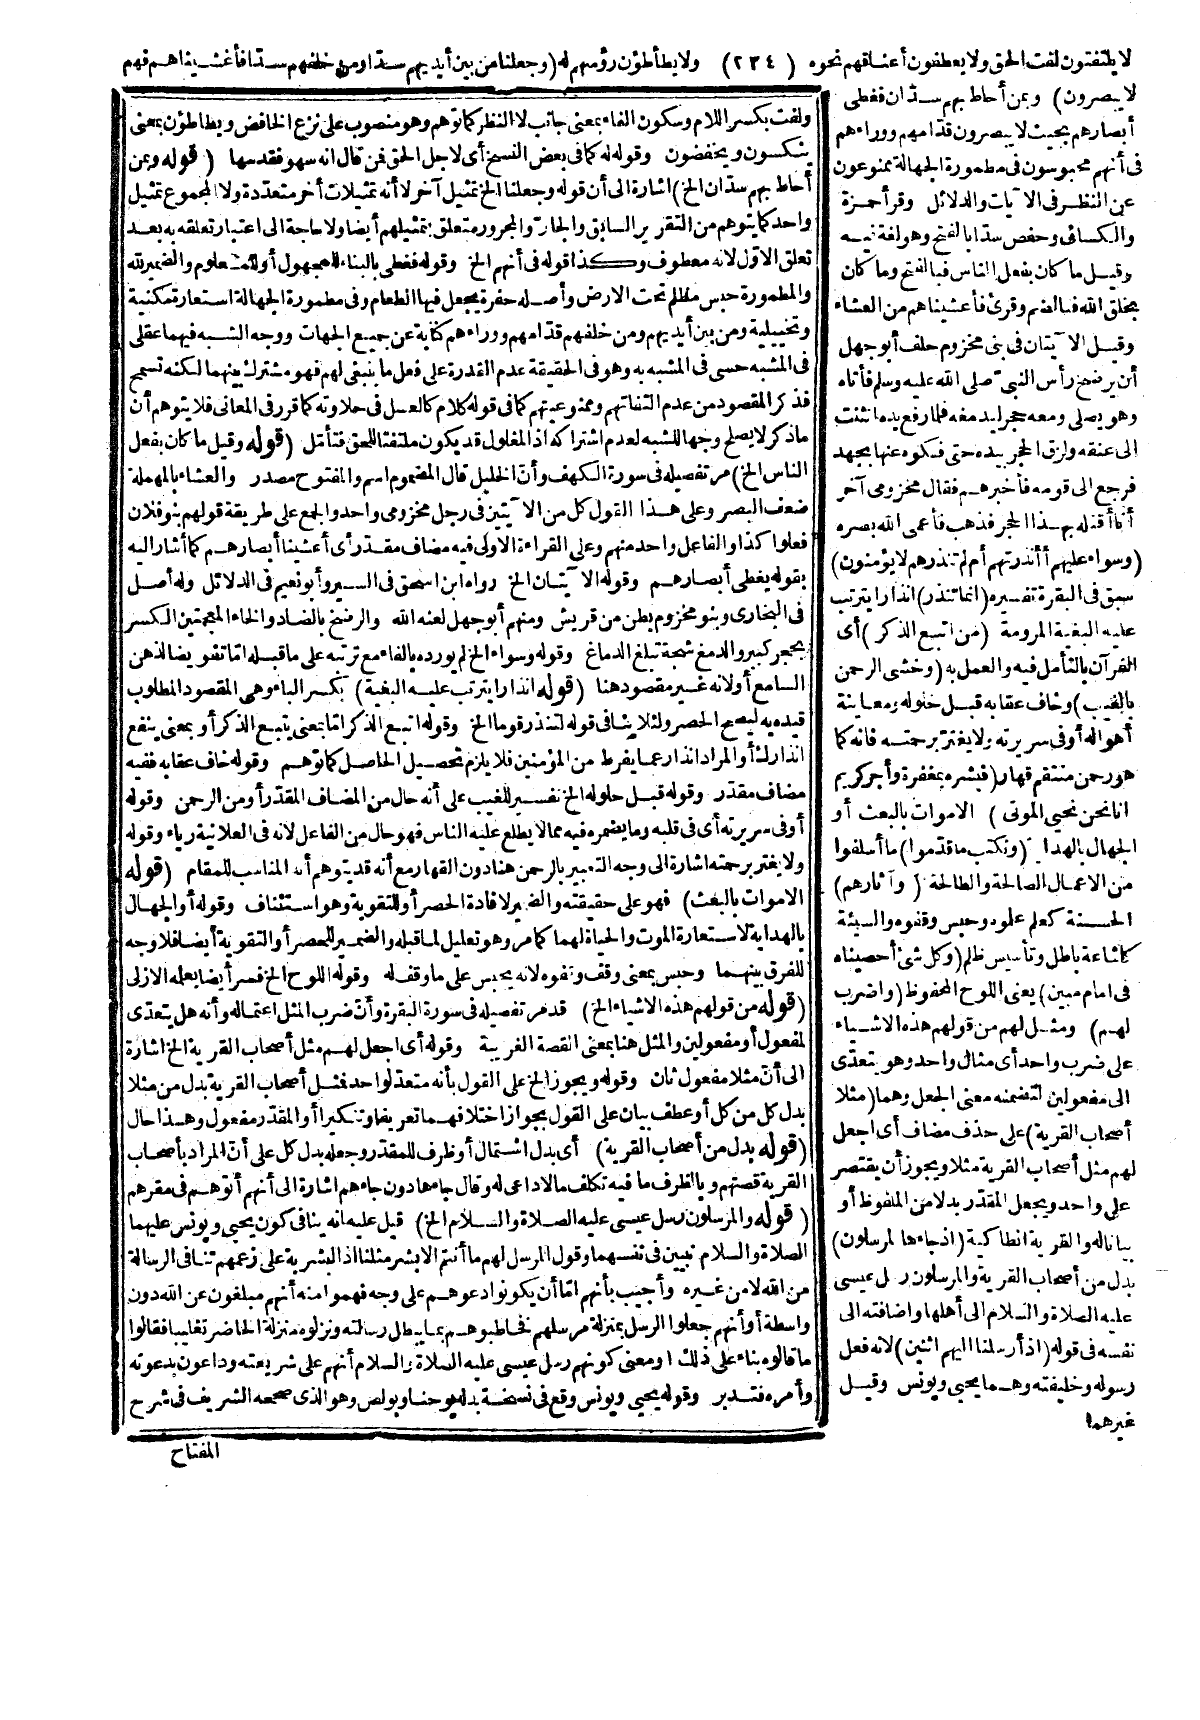 لا يلتفتون لفت الحق ولا يعطفون أعناقهم نحوه (٢٣٤) ولا يطأطؤن رؤسهم له (وجعلنا من بين أيديهم سدّا ومن خلفهم سدّا فأغشيناهم فهم
لا يبصرون) وبمن أحاط بهم سدّان فغطى
أبصارهم بحيث لا يبصرون قدّامهم ووراءهم
فى أنهم محبوسون فى مطمورة الجهالة ممنوعون
عن النظر فى الآيات والدلائل وقرأ حمزة
والكسائى وحفص سدّا بالفتح وهو لغة فيه
وقيل ما كان بفعل الناس فبالفتح وما كان
بخلق الله فبالضم وقرئ فأعشيناهم من العشاء
وقيل الآيتان فى بنى مخزوم حلف أبو جهل
أن يرضخ رأس النبىّ صلى الله عليه وسلم فأتاه
وهو يصلى ومعه حجر ليدمغه فلما رفع يده انثنت
الى عنقه ولزق الحجر بيده حتى فكوه عنها بجهد
فرجع الى قومه فأخبرهم فقال مخزومى آخر
أنا أقتله بهذا الحجر فذهب فأعمى الله بصره
(وسواء عليهم أأنذرتهم أم لم تنذرهم لا يؤمنون)
سبق فى البقرة تفسيره (انما تنذر) انذارا يترتب
عليه البغية المرومة (من اتبع الذكر) أى
القرآن بالتأمل فيه والعمل به (وخشى الرحمن
بالغيب) وخاف عقابه قبل حلوله ومعاينة
أهواله أو فى سريرته ولا يغتر برحمته فانه كما
هو رحمن منتقم قهار (فبشره بمغفرة وأجر كريم
انا نحن نحيى الموتى) الاموات بالبعث أو
الجهال بالهداية (ونكتب ما قدّموا) ما أسلفوا
من الاعمال الصالحة والطالحة (وآثارهم)
الحسنة كعلم علموه وحبس وقفوه والسيئة
كاشاعة باطل وتأسيس ظلم (وكل شئ أحصيناه
فى امام مبين) يعنى اللوح المحفوظ (واضرب
لهم) ومثل لهم من قولهم هذه الاشياء
على ضرب واحد أى مثال واحد وهو يتعدّى
الى مفعولين لتضمنه معنى الجعل وهما (مثلا
أصحاب القرية) على حذف مضاف أى اجعل
لهم مثل أصحاب القرية مثلا ويجوز أن يقتصر
على واحد ويجعل المقدّر بدلا من الملفوظ أو
بيانا له والقرية انطاكية (اذ جاءها المرسلون)
بدل من أصحاب القرية والمرسلون رسل عيسى
عليه الصلاة والسلام الى أهلها واضافته الى
نفسه فى قوله (اذ أرسلنا اليهم اثنين) لانه فعل
رسوله وخليفته وهما يحيى ويونس وقيل
غيرهما
ولفت بكسر اللام وسكون الفاء بمعنى جانب لا النظر كما توهم وهو منصوب على نزع الخافض ويطأطؤن بمعنى
ينكسون ويخفضون وقوله له كما فى بعض النسخ أى لاجل الحق فمن قال انه سهو فقد سها (قوله وبمن
أحاط بهم سدّان الخ) اشارة الى أن قوله وجعلنا الخ تمثيل آخر لا أنه تمثيلات أخر متعدّدة ولا المجموع تمثيل
واحد كما يتوهم من التقرير السابق والجارّ والمجرور متعلق بتمثيلهم أيضا ولا حاجة الى اعتبار تعلقه به بعد
تعلق الاوّل لانه معطوف وكذا قوله فى أنهم الخ وقوله فغطى بالبناء للمجهول أو للمعلوم والضمير لله
والمطمورة حبس مظلم تحت الارض وأصله حفرة يجعل فيها الطعام وفى مطمورة الجهالة استعارة مكنية
وتخييلية ومن بين أيديهم ومن خلفهم قدّامهم ووراءهم كناية عن جميع الجهات ووجه الشبه فيهما عقلى
فى المشبه حسى فى المشبه به وهو فى الحقيقة عدم القدرة على فعل ما ينبغى لهم فهو مشترك بينهما لكنه تسمح
فذكر المقصود من عدم التفاتهم وممنوعيتهم كما فى قوله كلام كالعسل فى حلاوته كما قرر فى المعانى فلا يتوهم أن
ما ذكر لا يصلح وجها للشبه لعدم اشتراكه اذ المغلول قد يكون ملتفتا للحق فتأمّل (قوله وقيل ما كان بفعل
الناس الخ) مر تفصيله فى سورة الكهف وأنّ الخليل قال المضموم اسم والمفتوح مصدر والعشاء بالمهملة
ضعف البصر وعلى هذا القول كل من الآيتين فى رجل مخزومى واحد والجمع على طريقة قولهم بنو فلان
فعلوا كذا والفاعل واحد منهم وعلى القراءة الاولى فيه مضاف مقدّر أى أعشينا أبصارهم كما أشار اليه
بقوله يغطى أبصارهم وقوله الآيتان الخ رواه ابن اسحق فى السير وأبو نعيم فى الدلائل وله أصل
فى البخارى وبنو مخزوم بطن من قريش ومنهم أبو جهل لعنه الله والرضخ بالضاد والخاء المعجمتين الكسر
بحجر كبير والدمغ شجة تبلغ الدماغ وقوله وسواء الخ لم يورده بالفاء مع ترتبه على ما قبله امّا تفويضا لذهن
السامع أو لانه غير مقصود هنا (قوله انذارا يترتب عليه البغية) بكسر الباء وهى المقصود المطلوب
قيده به ليصح الحصر ولئلا ينافى قوله لتنذر قوما الخ وقوله اتبع الذكر امّا بمعنى يتبع الذكر أو بمعنى ينفع
انذارك أو المراد انذار عما يفرط من المؤمنين فلا يلزم تحصيل الحاصل كما توهم وقوله خاف عقابه ففيه
مضاف مقدّر وقوله قبل حلوله الخ تفسير للغيب على أنه حال من المضاف المقدّر أو من الرحمن وقوله
أو فى سريرته أى فى قلبه وما يضمره فيه مما لا يطلع عليه الناس فهو حال من الفاعل لانه فى العلانية رياء وقوله
ولا يغتر برحمته اشارة الى وجه التعبير بالرحمن هنا دون القهار مع أنه قد يتوهم أنه المناسب للمقام (قوله
الاموات بالبعث) فهو على حقيقته والضمير لافادة الحصر أو للتقوية وهو استئناف وقوله أو الجهال
بالهداية لاستعارة الموت والحياة لهما كما مر وهو تعليل لما قبله والضمير للحصر أو التقوية أيضا فلا وجه
للفرق بينهما وحبس بمعنى وقف وتفوه لانه يحبس على ما وقف له وقوله اللوح الخ فسر أيضا بعلمه الازلى
(قوله من قولهم هذه الاشياء الخ) قد مر تفصيله فى سورة البقرة وأنّ ضرب المثل اعتماله وأنه هل يتعدّى
لمفعول أو مفعولين والمثل هنا بمعنى القصة الغريبة وقوله أى اجعل لهم مثل أصحاب القرية الخ اشارة
الى أنّ مثلا مفعول ثان وقوله ويجوز الخ على القول بأنه متعدّ لواحد فمثل أصحاب القرية بدل من مثلا
بدل كل من كل أو عطف بيان على القول بجواز اختلافهما تعريفا وتنكيرا أو المقدّر مفعول وهذا حال
(قوله بدل من أصحاب القرية) أى بدل اشتمال أو ظرف للمقدّر وجعله بدل كل على أنّ المراد بأصحاب
القرية قصتهم وبالظرف ما فيه تكلف ما لا داعى له وقال جاءها دون جاءهم اشارة الى أنهم أتوهم فى مقرهم
(قوله والمرسلون رسل عيسى عليه الصلاة والسلام الخ) قيل عليه انه ينافى كون يحيى ويونس عليهما
الصلاة والسلام نبيين فى نفسهما وقول المرسل لهم ما أنتم الا بشر مثلنا اذ البشرية على زعمهم تنافى الرسالة
من الله لا من غيره وأجيب بأنهم امّا أن يكونوا دعوهم على وجه فهموا منه أنهم مبلغون عن الله دون
واسطة أو أنهم جعلوا الرسل بمنزلة مرسلهم فخاطبوهم بما يبطل رسالته ونزلوه منزلة الحاضر تغليبا فقالوا
ما قالوه بناء على ذلك ومعنى كونهم رسل عيسى عليه الصلاة والسلام أنهم على شريعته وداعون بدعوته
وأمره فتدبر وقوله يحيى ويونس وقع فى نسخة بدله يوحنا وبولص وهو الذى صححه الشريف فى شرح
المفتاح